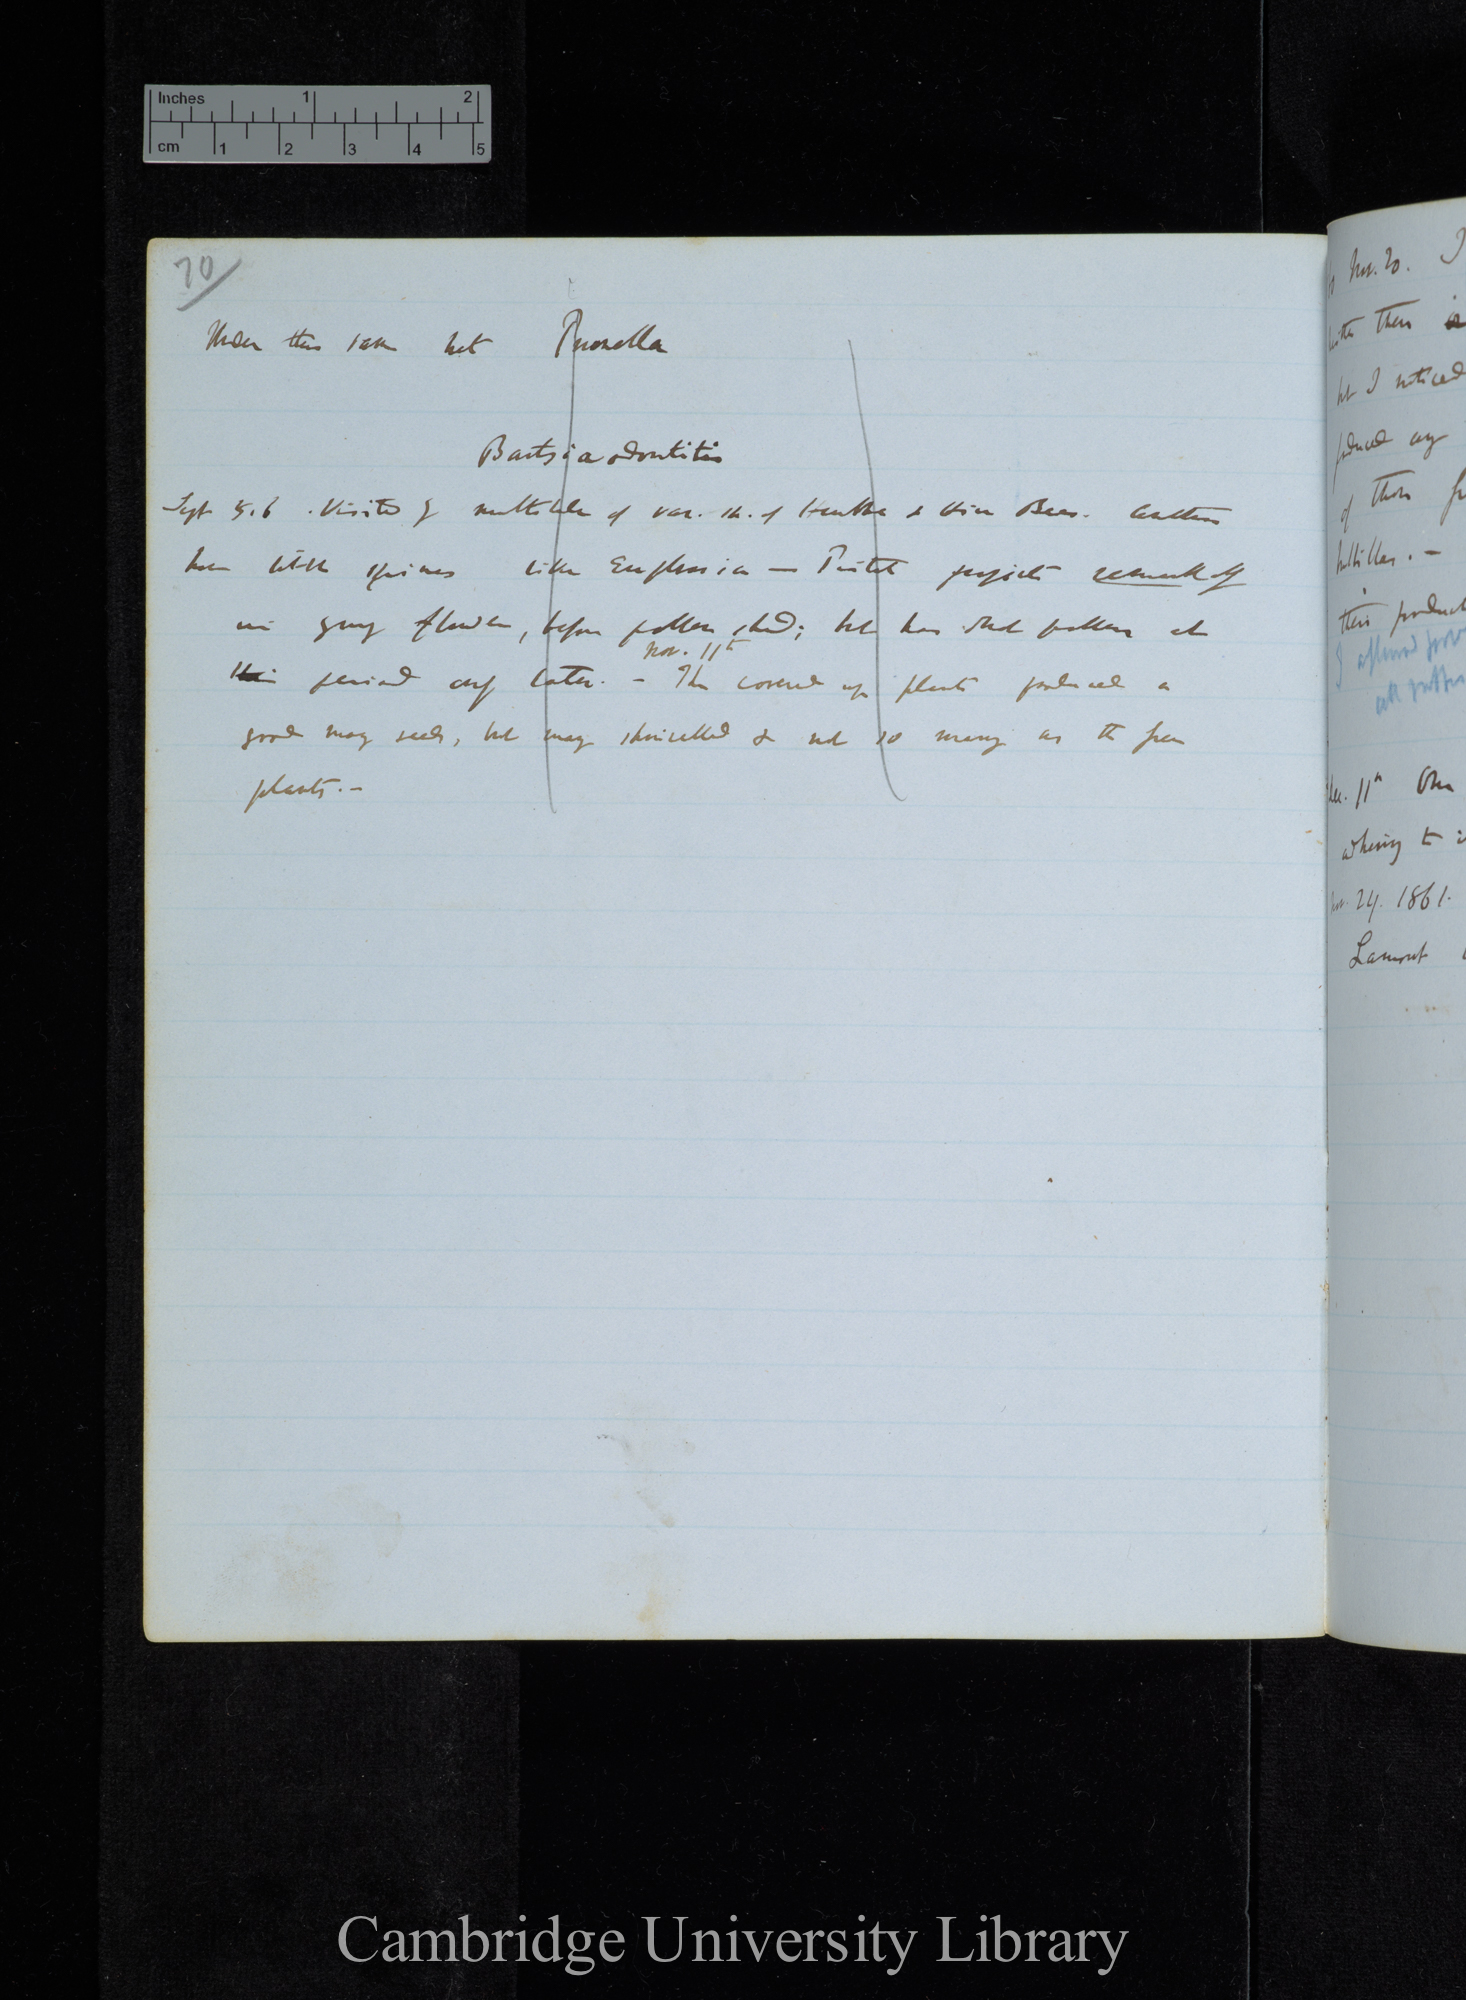 Inches 1 2
cm 1 2 3 4 5
70
Under this same net Prunella
Bartsia odontitis
Sept 5. 6. Visited by multitude of var. of Humble & Hive Bees. Anthers
have little spines like Euphrasia — Pistil projects remarkably
in young flower, before pollen shed; but has shed pollen at
this period any later. — Nov. 11th The covered up plants produced a
good many seeds, but many shrivelled & not so many as the free
plants. —
Nov. 20. I
there
but I noticed
produced any
of them
their product
Dec. 11th One
adhering to
24. 1861.
Lamont
Cambridge University Library